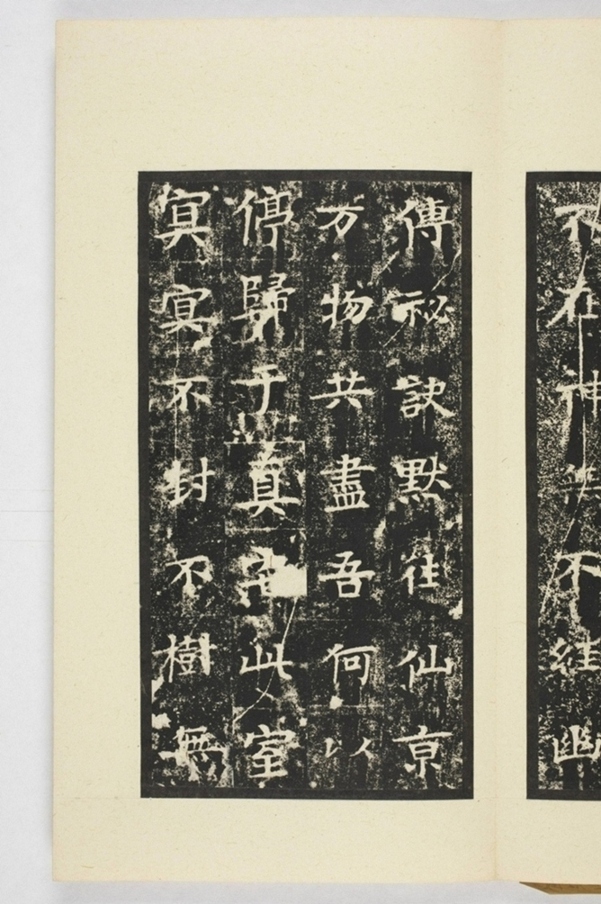 不在神無不經幽
傳祕訣默往仙京
万物共盡吾何以
停歸于真宅此室
冥冥不封不樹無